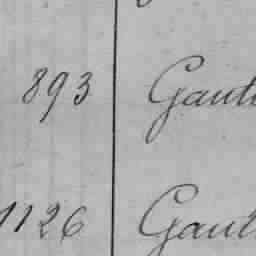 893 Gaut
1126 Gaut